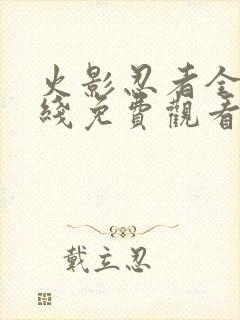 火影忍者全
綫免費觀看
戴立忍